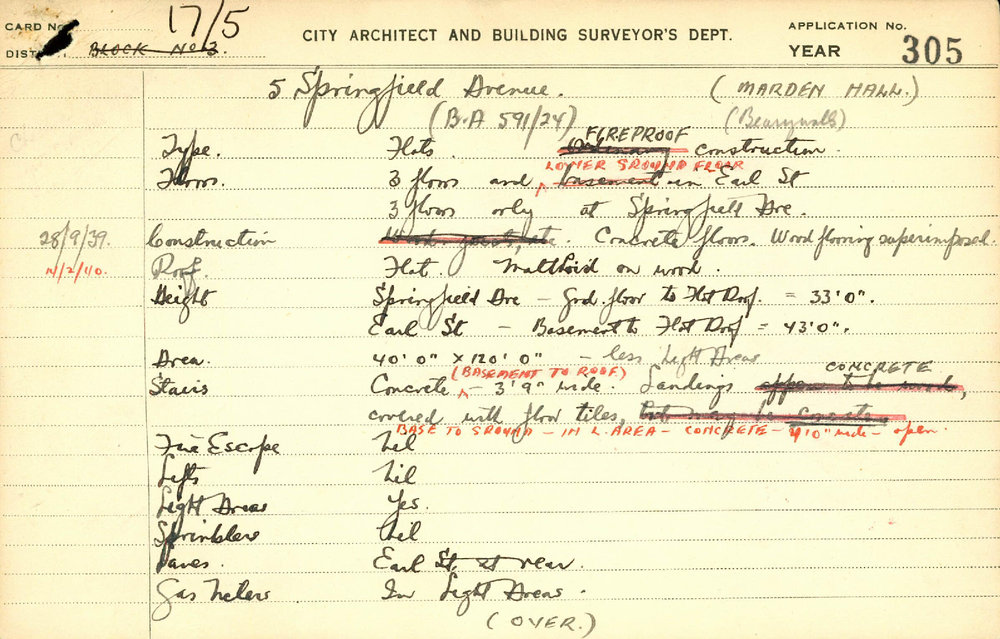 CARD No. 17/5 CITY ARCHITECT AND BUILDING SURVEYOR'S DEPT. APPLICATION No.
BLOCK No 3. YEAR 305
5 Springfield Avenue. (MARDEN HALL.)
(B.A 591/24) (Bearywalls)
FIREPROOF
Type. Flats. Ordinary construction.
LOWER GROUND FLOOR
Floors. 3 floors and basement in Earl St
3 floors only at Springfield Ave.
28/9/39. Construction Wood joists, etc. Concrete floors. Wood flooring superimposed.
Roof. Flat. Malthoid on wood.
Height Springfield Ave - Grd. floor to Flat Roof. = 33'0".
Earl St - Basement to Flat Roof = 43'0".
Area. 40'0" x 120'0" - less Light Areas
(BASEMENT TO ROOF) CONCRETE
Stairs Concrete - 3'9" wide. Landings appear to be wood,
covered with floor tiles, but may be concrete.
BASE TO GROUND - IN L. AREA - CONCRETE - 4'0" wide - open.
Fire Escape Nil
Lifts Nil
Light Areas Yes.
Sprinklers Nil
Lanes. Earl St. at rear.
Gas Meters In Light Areas.
(OVER.)